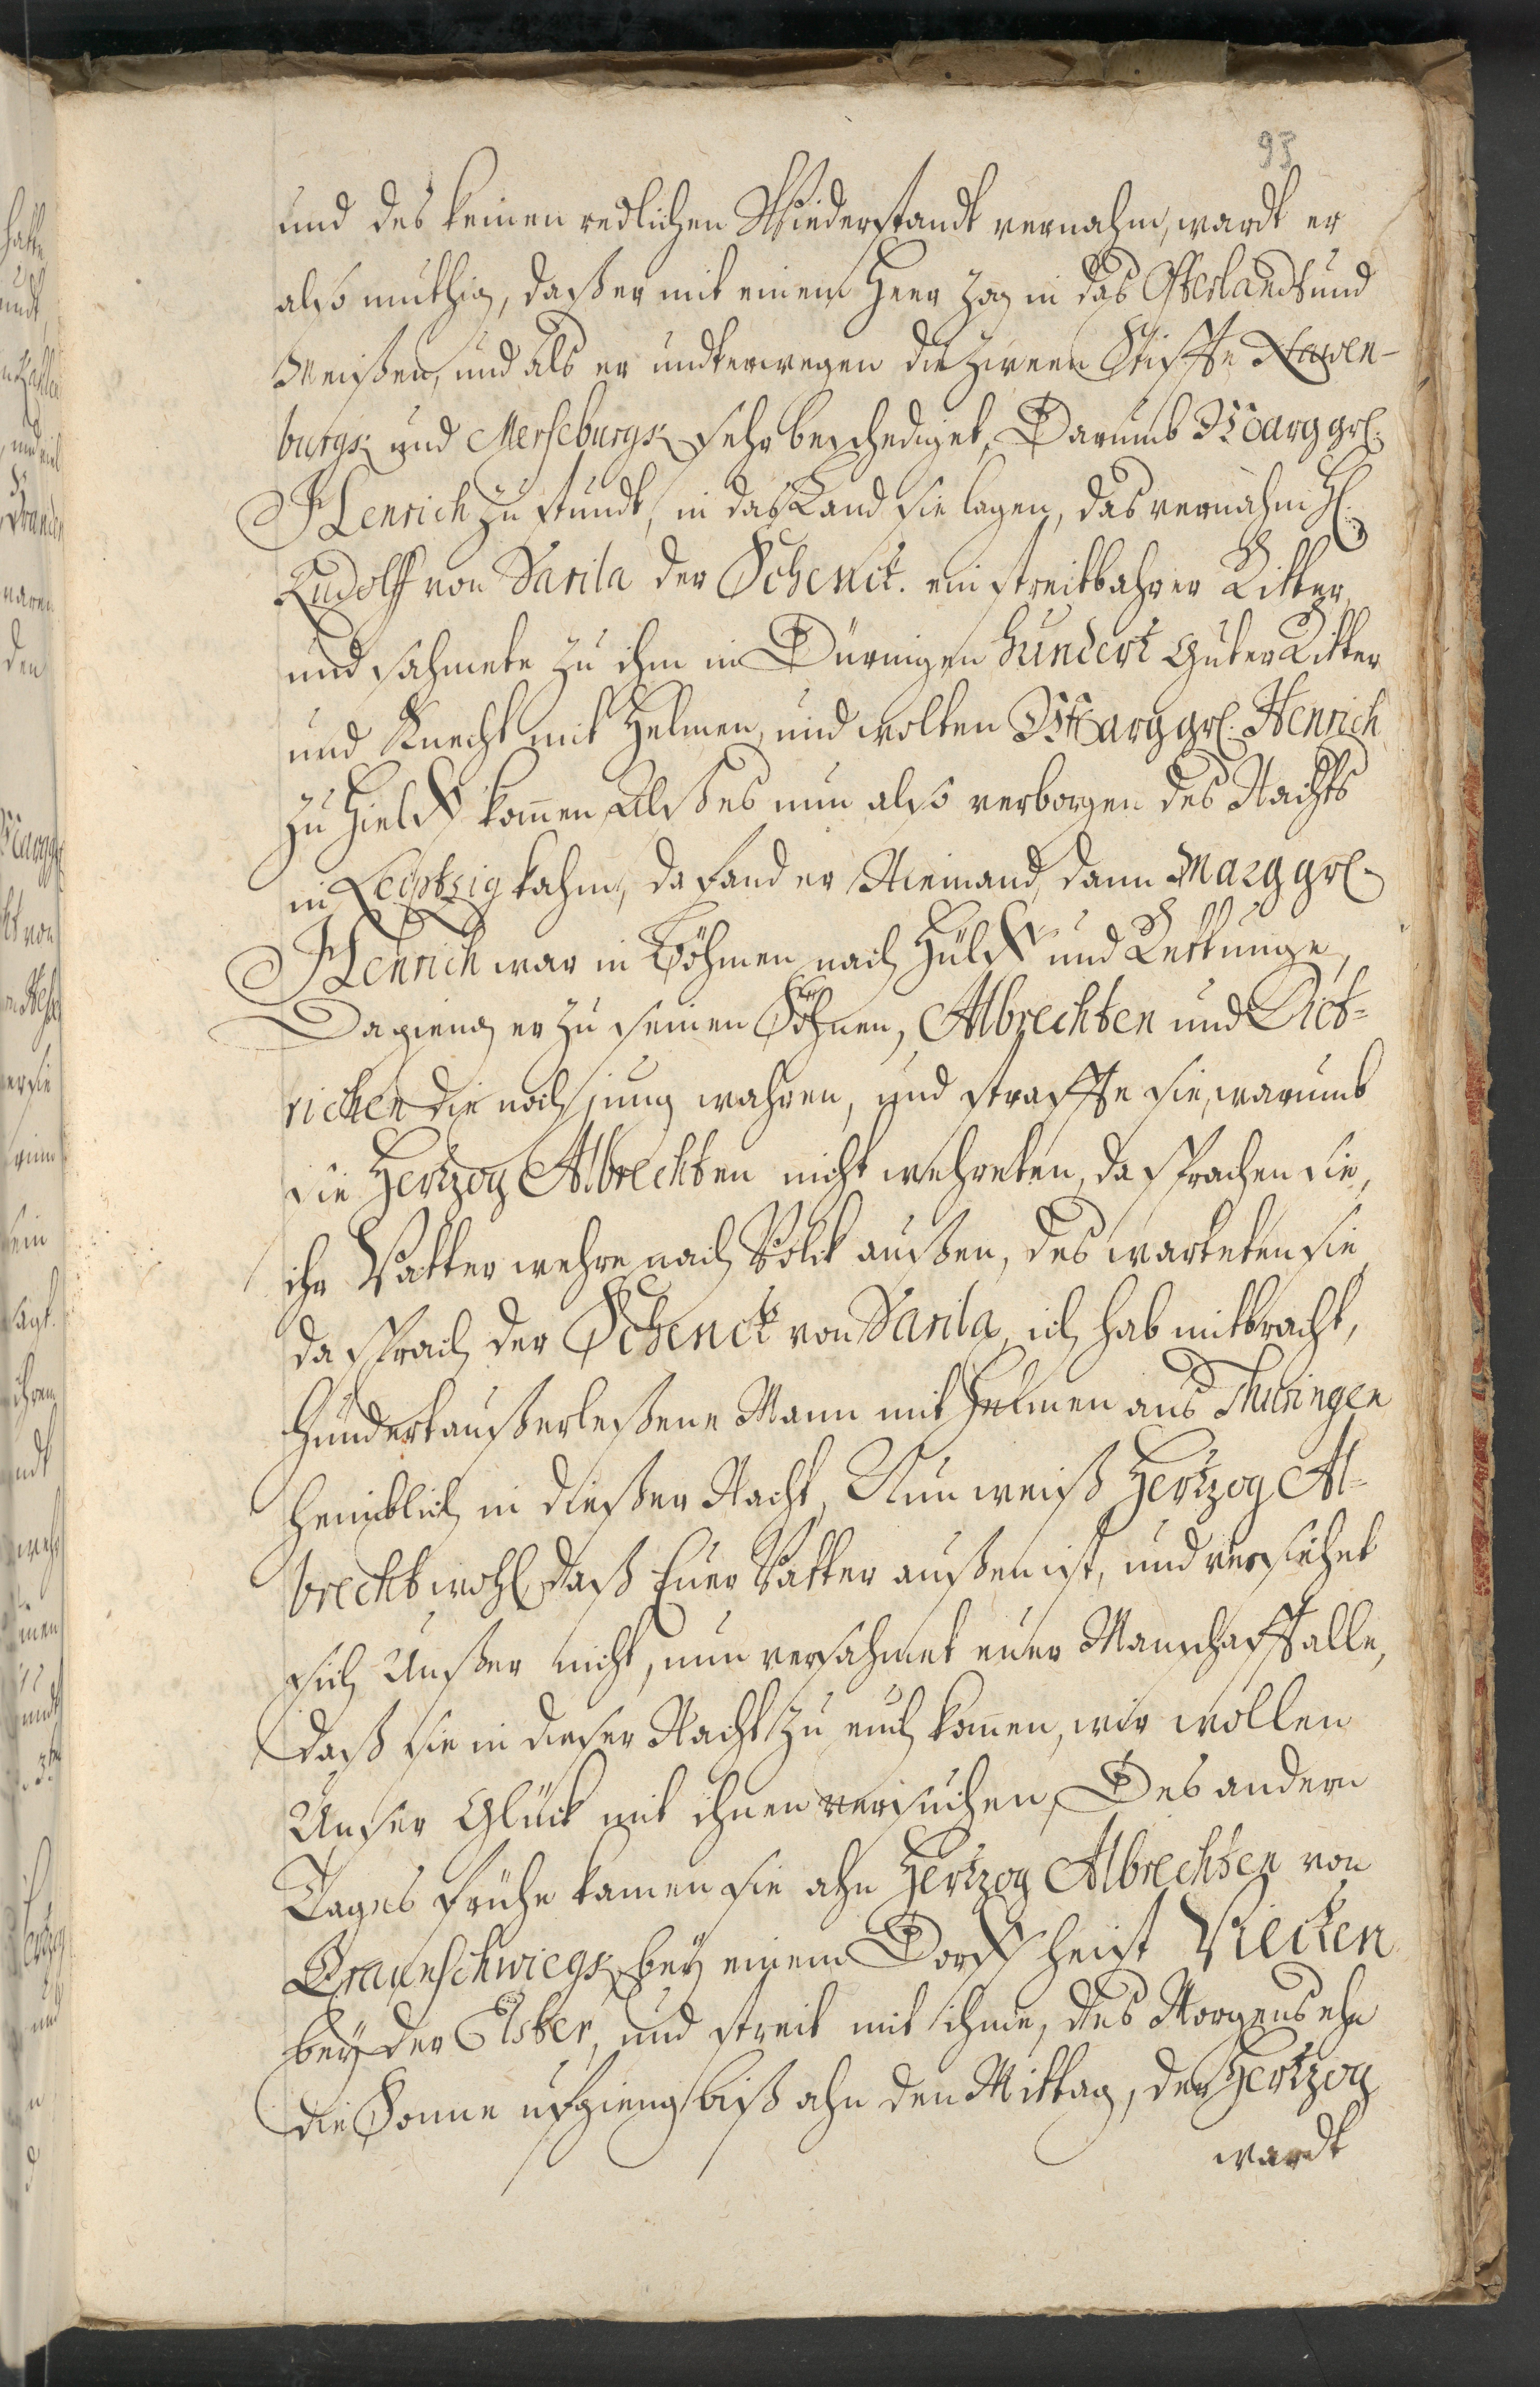 93
und des keinen redlichen Wiederstandt vernahm, wardt er
also muthig, daß er mit einem Heer zog in das Osterlandt und
Meißen, und als er undterwegen die zween Stiffte Nawen-
burgk und Merseburgk sehr beschediget, Darumb Marggrf.
Henrich zu stundt, in das Land sie lagen, das vernahm H.
Rudolff von Varila der Schenck. ein streitbahrer Ritter,
und sahmete zu ihm in Düringen hundert guter Ritter
und Knecht mit Helmen, und wolten Marggrf. Henrich
zu Hielff kom̄en, Alß es nun also verborgen des Nachts
in Leiptzig kahm, da fand er Niemand, dann Marggrf.
Henrich war in Böhmen nach Hülff und Rettunge,
Da gieng er zu seinen Söhnen, Albrechten und Diet-
richen die noch jung wahren, und straffte sie, warumb
sie Hertzog Albrechten nicht wehreten, da sprachen sie,
ihr Vatter wehre nach Volck außen, des warteten sie,
da sprach der Schenck von Varila, ich hab mitbracht,
hundert außerleßene Mann mit Helmen aus Thuringen
heimblich in dießer Nacht, Nun weiß Hertzog Al-
brecht wohl, daß Euer Vatter außen ist, und versiehet
sich Unßer nicht, nun versahmet euer Manschafft alle,
daß sie in dieser Nacht zu euch kom̄en, wir wollen
Unser Glück mit ihnen versuchen, Des andern
Tages frühe kamen sie ahn Hertzog Albrechten von
Braunschwiegk, bey einem Dorff heist Viecken
bey der Elster, und streit mit ihme, des Morgens ehe
die Sonne ufgieng biß ahn den Mittag, der Hertzog
wardt